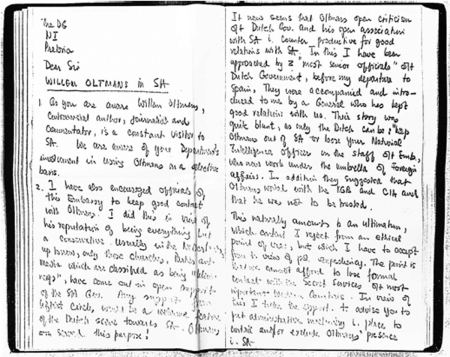 The DG
NI
Pretoria
Dear Sir
WILLEM OLTMANS in SA
1. As you are aware Willem Oltmans,
controversial author, journalist and
commentator, is a constant visitor to
SA. We are aware of your Department's
involvement in using Oltmans on a selective
basis.
2. I have also encouraged officials of
this Embassy to keep good contact
with Oltmans. I did this in view of
his reputation of being everything but
a conservative. Usually in the
only those churches, parties and
media which are classified as being
have come out in open support
of the SA Gov. Any support from
leftist circles, would be a
of the Dutch scene towards SA - Oltmans
can serve this purpose!
It now seems that Oltmans open criticism
of Dutch Gov. and his open association
with SA is counter productive for good
relations with SA. In this I have been
approached by 2 "most senior officials" of
Dutch Government, before my departure to
Spain. They were accompanied and intro-
duced to me by a General who has kept
good relations with us. Their story was
quite blunt, as only the Dutch can be; keep
Oltmans out of SA or loose your National
Intelligence officer on the staff of Emb,
who now work under the umbrella of Foreign
affairs. In addition they suggested that
Oltmans worked with the KGB and CIA and
that he was not to be trusted.
This naturally amounts to an ultimatum,
which I reject from an ethical
point of view, but which I have to accept
from a view of The point is
that we cannot afford to lose formal
contact with the Secret Services of most
important Western Countries. In view of
this I take the support to advise you to
put administrative machinery in place to
and/or exclude Oltmans' presence
in SA